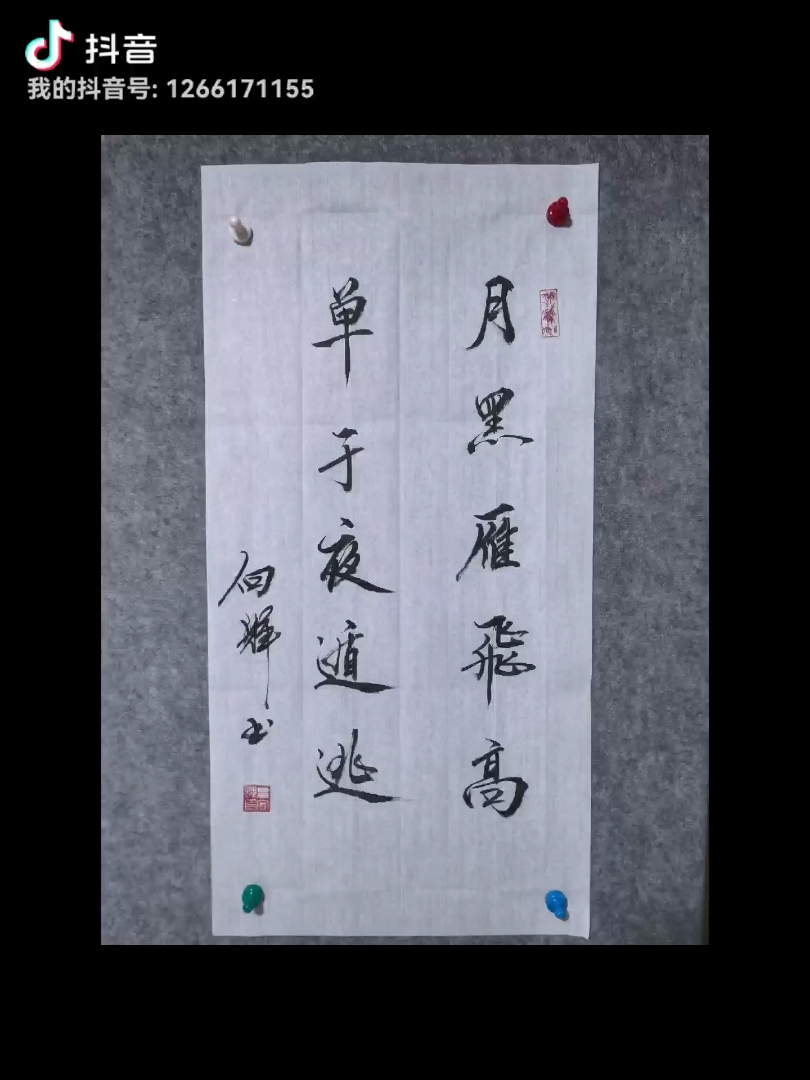 抖音
我的抖音号: 1266171155
月黑雁飛高
单于夜遁逃
向辉书